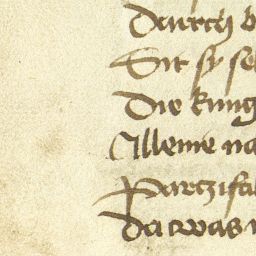 Durch b
Sit sy se
Die kung
Alleine na
Partzifal
Da was